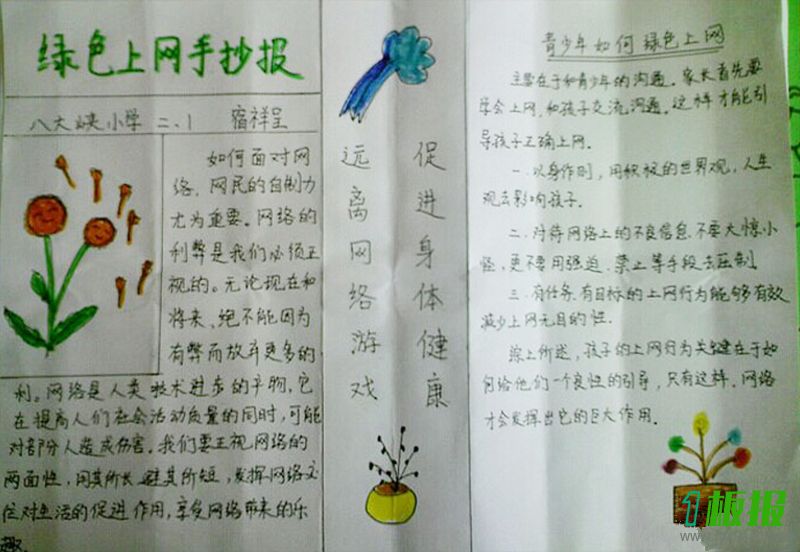 绿色上网手抄报
八大峡小学 二.1 宿祥呈
如何面对网
络，网民的自制力
尤为重要。网络的
利弊是我们必须正
视的。无论现在和
将来，绝不能因为
有弊而放弃更多的
利。网络是人类技术进步的产物，它
在提高人们社会活动质量的同时，可能
对部分人造成伤害。我们要正视网络的
两面性，用其所长，避其所短，发挥网络
对生活的促进作用，享受网络带来的乐
趣
远离网络游戏
促进身体健康
青少年如何绿色上网
主要在于和青少年的沟通。家长首先要
学会上网，和孩子交流沟通。这样才能引
导孩子正确上网。
一.以身作则，用积极的世界观，人生
观去影响孩子.
二.对待网络上的不良信息.不要大惊小
怪，更不要用强迫.禁止等手段去压制
三.有任务.有目标的上网行为能够有效
减少上网无目的性.
综上所述，孩子的上网行为关键在于如
何给他们一个良性的引导，只有这样.网络
才会发挥出它的巨大作用.
1板报
www.